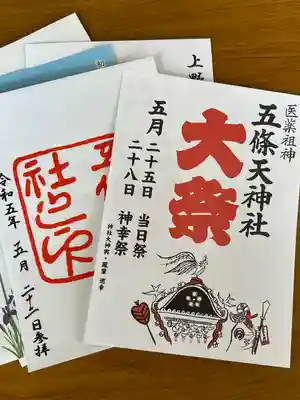 医薬祖神
五條天神社
大祭
五月 二十五日 当日祭
二十八日 神幸祭
神社大神輿・鳳輦 巡幸
上野
令和五年 五月 二十二日参拝